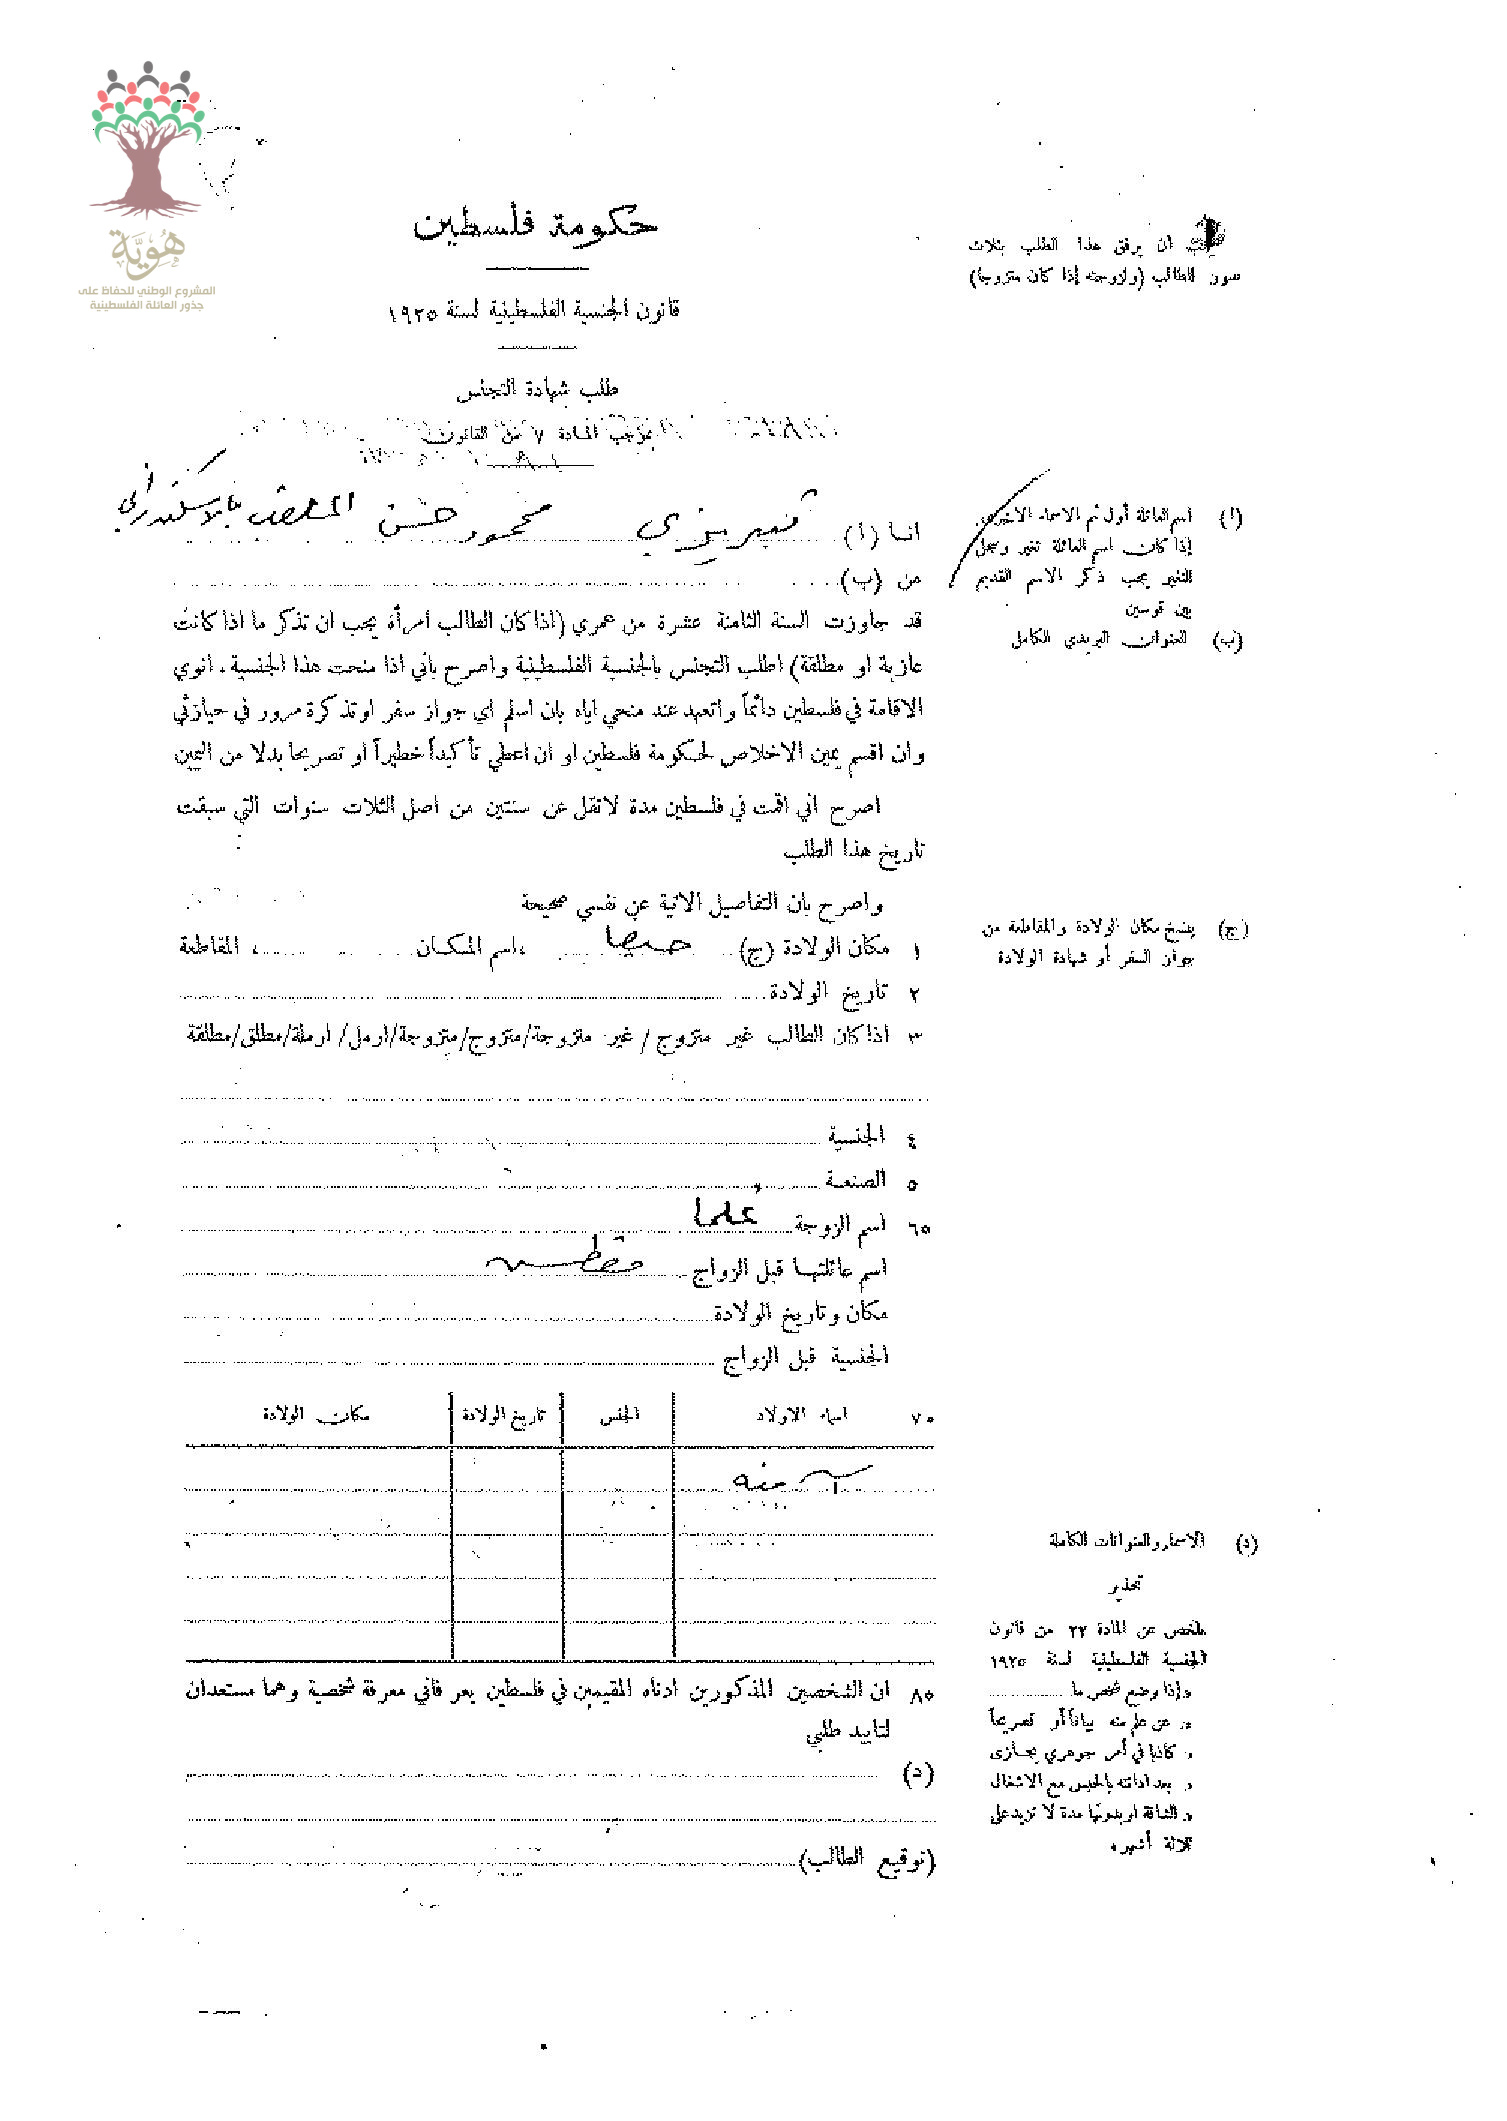 هُوِيَّة
المشروع الوطني للحفاظ على
جذور العائلة الفلسطينية
حكومة فلسطين
قانون الجنسية الفلسطينية لسنة ١٩٢٥
طلب شهادة التجنس
بموجب المادة ٧ من القانون
يجب ان يرفق هذا الطلب بثلاث
صور للطالب (ولزوجته إذا كان متزوجا)
انا (ا) تبريزي محمود حسن الملقب بالاسكندراني
من (ب)
قد جاوزت السنة الثامنة عشرة من عمري (اذا كان الطالب امرأة يجب ان تذكر ما اذا كانت
عازبة او مطلقة) اطلب التجنس بالجنسية الفلسطينية واصرح بأني اذا منحت هذا الجنسية. انوي
الاقامة في فلسطين دائماً واتعهد عند منحي اياه بان اسلم اي جواز سفر او تذكرة مرور في حيازتي
وان اقسم يمين الاخلاص لحكومة فلسطين او ان اعطي تأكيداً خطيراً او تصريحا بدلا من اليمين
اصرح اني اقمت في فلسطين مدة لا تقل عن سنتين من اصل الثلاث سنوات التي سبقت
تاريخ هذا الطلب
واصرح بان التفاصيل الاتية عن نفسي صحيحة
١ مكان الولادة (ج) حيفا ،اسم المكان ، المقاطعة
٢ تاريخ الولادة
٣ اذا كان الطالب غير متزوج / غير متزوجة/متزوج/متزوجة/ارمل/ ارملة/مطلق/مطلقة
٤ الجنسية
٥ الصنعة
٦٠ اسم الزوجة عليا
اسم عائلتها قبل الزواج
مكان وتاريخ الولادة
الجنسية قبل الزواج
٧٠ اسماء الاولاد الجنس تاريخ الولادة مكان الولادة
آمنه
٨٠ ان الشخصين المذكورين ادناه المقيمين في فلسطين يعرفاني معرفة شخصية وهما مستعدان
لتاييد طلبي
(د)
(توقيع الطالب)
(ا) اسم العائلة أول ثم الاسماء الاخرى.
إذا كان اسم العائلة تغير وسجل
التغير يجب ذكر الاسم القديم
بين قوسين
(ب) العنوان البريدي الكامل
(ج) ينسخ مكان الولادة والمقاطعة من
جواز السفر أو شهادة الولادة
(د) الاسماء والعنوانات الكاملة
تحذير
ملخص عن المادة ٢٢ من قانون
الجنسية الفلسطينية لسنة ١٩٢٥
وإذا وضع شخص ما
عن علم منه بياناً أو تصريحاً
كاذبا في أمر جوهري يجازى
بعد ادانته بالحبس مع الاشغال
الشاقة او بدونها مدة لا تزيد على
ثلاثة أشهر.